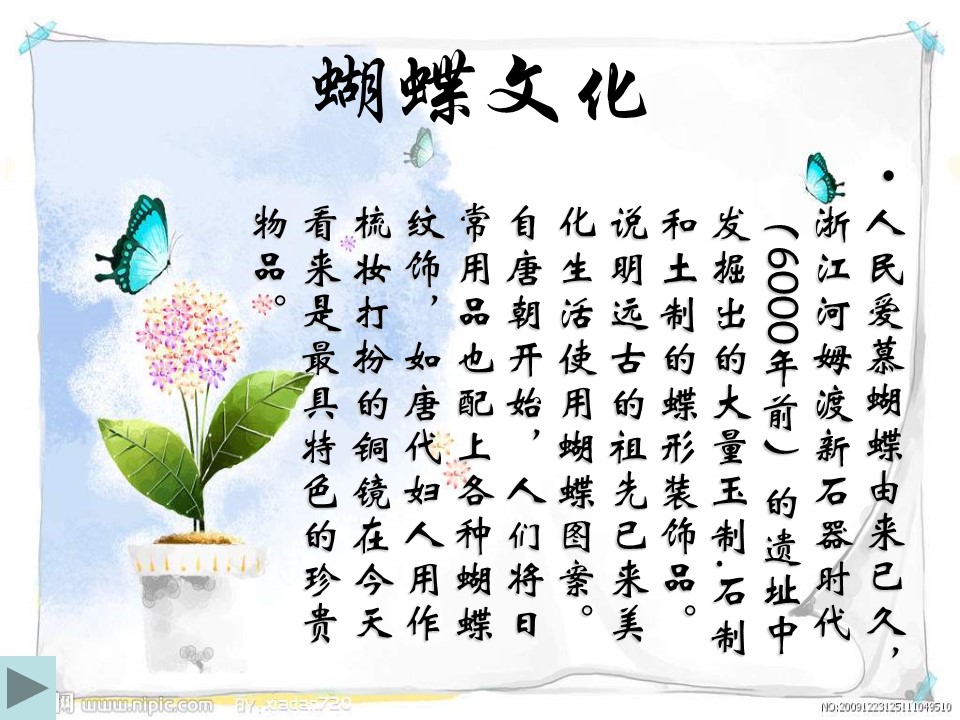 蝴蝶文化
• 人民爱慕蝴蝶由来已久，
浙江河姆渡新石器时代
（6000年前）的遗址中
发掘出的大量玉制.石制
和土制的蝶形装饰品。
说明远古的祖先已来美
化生活使用蝴蝶图案。
自唐朝开始，人们将日
常用品也配上各种蝴蝶
纹饰，如唐代妇人用作
梳妆打扮的铜镜在今天
看来是最具特色的珍贵
物品。
网 www.nipic.com BY:xiatar720
NO:20091223125111049510